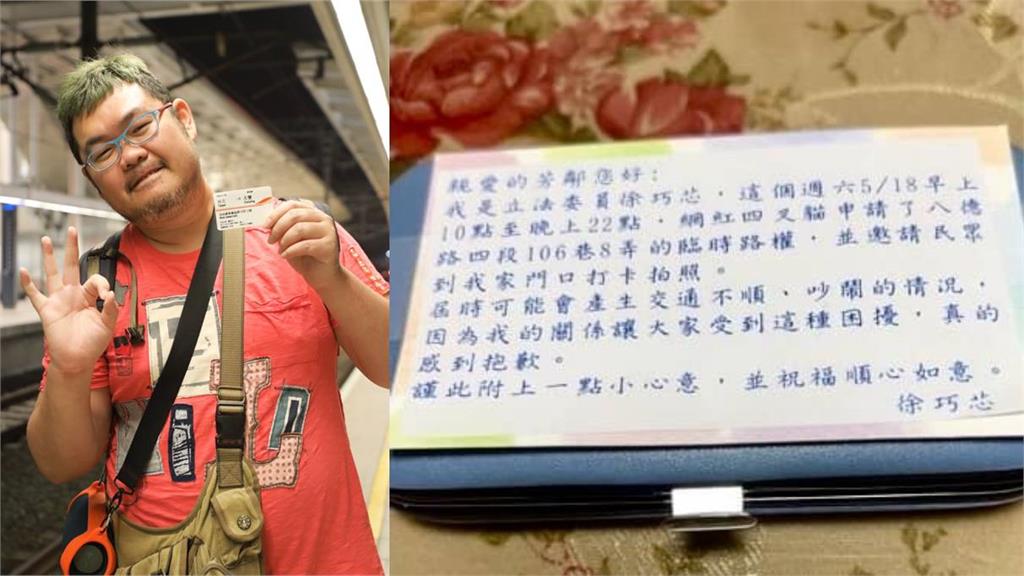 親愛的芳鄰您好:
我是立法委員徐巧芯，這個週六5/18早上
10點至晚上22點，網紅四叉貓申請了八德
路四段106巷8弄的臨時路權，並邀請民眾
到我家門口打卡拍照。
屆時可能會產生交通不順、吵鬧的情況，
因為我的關係讓大家受到這種困擾，真的
感到抱歉。
謹此附上一點小心意，並祝福順心如意。
徐巧芯